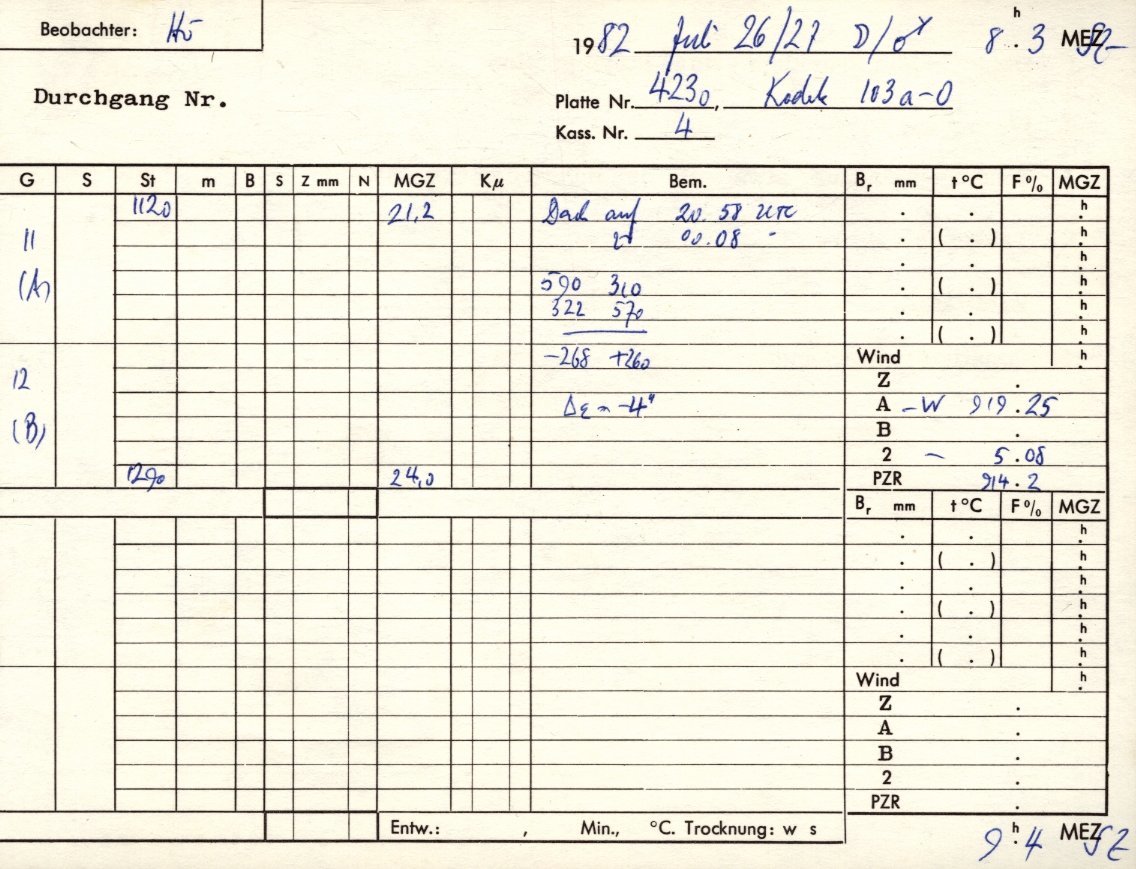 Beobachter: Hö
1982 Juli 26/27 D/♂ 8h.3 MESZ
Durchgang Nr.
Platte Nr. 4230, Kodak 103a-O
Kass. Nr. 4
G S St m B S Z mm N MGZ Kμ Bem. Br mm t °C F % MGZ
1120 21,2 Dach auf 20.58 UTC . . h.
11 zu 00.08 " . ( . ) h.
. . h.
(A) 590 310 . ( . ) h.
322 570 . . h.
. ( . ) h.
-268 +260 Wind h.
12 Z .
Δε = -4" A -W 919.25
(B) B .
2 - 5.08
1290 24,0 PZR 914.2
Br mm t °C F % MGZ
. . h.
. ( . ) h.
. . h.
. ( . ) h.
. . h.
. ( . ) h.
Wind h.
Z .
A .
B .
2 .
PZR .
Entw.: , Min., °C. Trocknung: w s
9h.4 MESZ